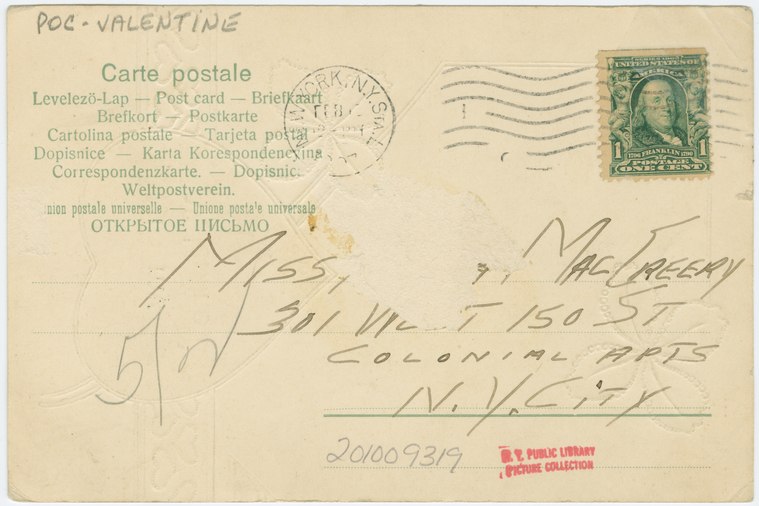 POC-VALENTINE
Carte postale
Levelező-Lap — Post card — Briefkaart
Brefkort — Postkarte
Cartolina postale — Tarjeta postal
Dopisnice — Karta Korespondencyjna
Correspondenzkarte. — Dopisnic
Weltpostverein.
nion postale universelle — Unione postale universale
ОТКРЫТОЕ ПИСЬМО
NEW YORK, N.Y. STA. L
FEB
SERIES 1902
UNITED STATES OF
AMERICA
1 FRANKLIN 1
POSTAGE
ONE CENT
MISS MACCREERY
301 WEST 150 ST
COLONIAL APTS
N.Y. CITY
201009319
N. Y. PUBLIC LIBRARY
PICTURE COLLECTION